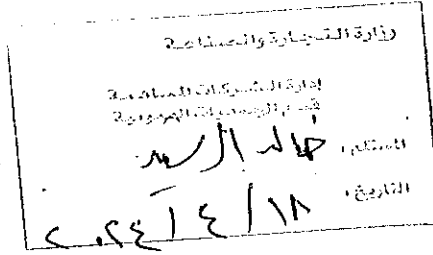 وزارة التجارة والصناعة
إدارة الشركات المساهمة
قسم الجمعيات العمومية
المستلم: خالد الرشيد
التاريخ: ١٨ / ٤ / ٢٠٢٤